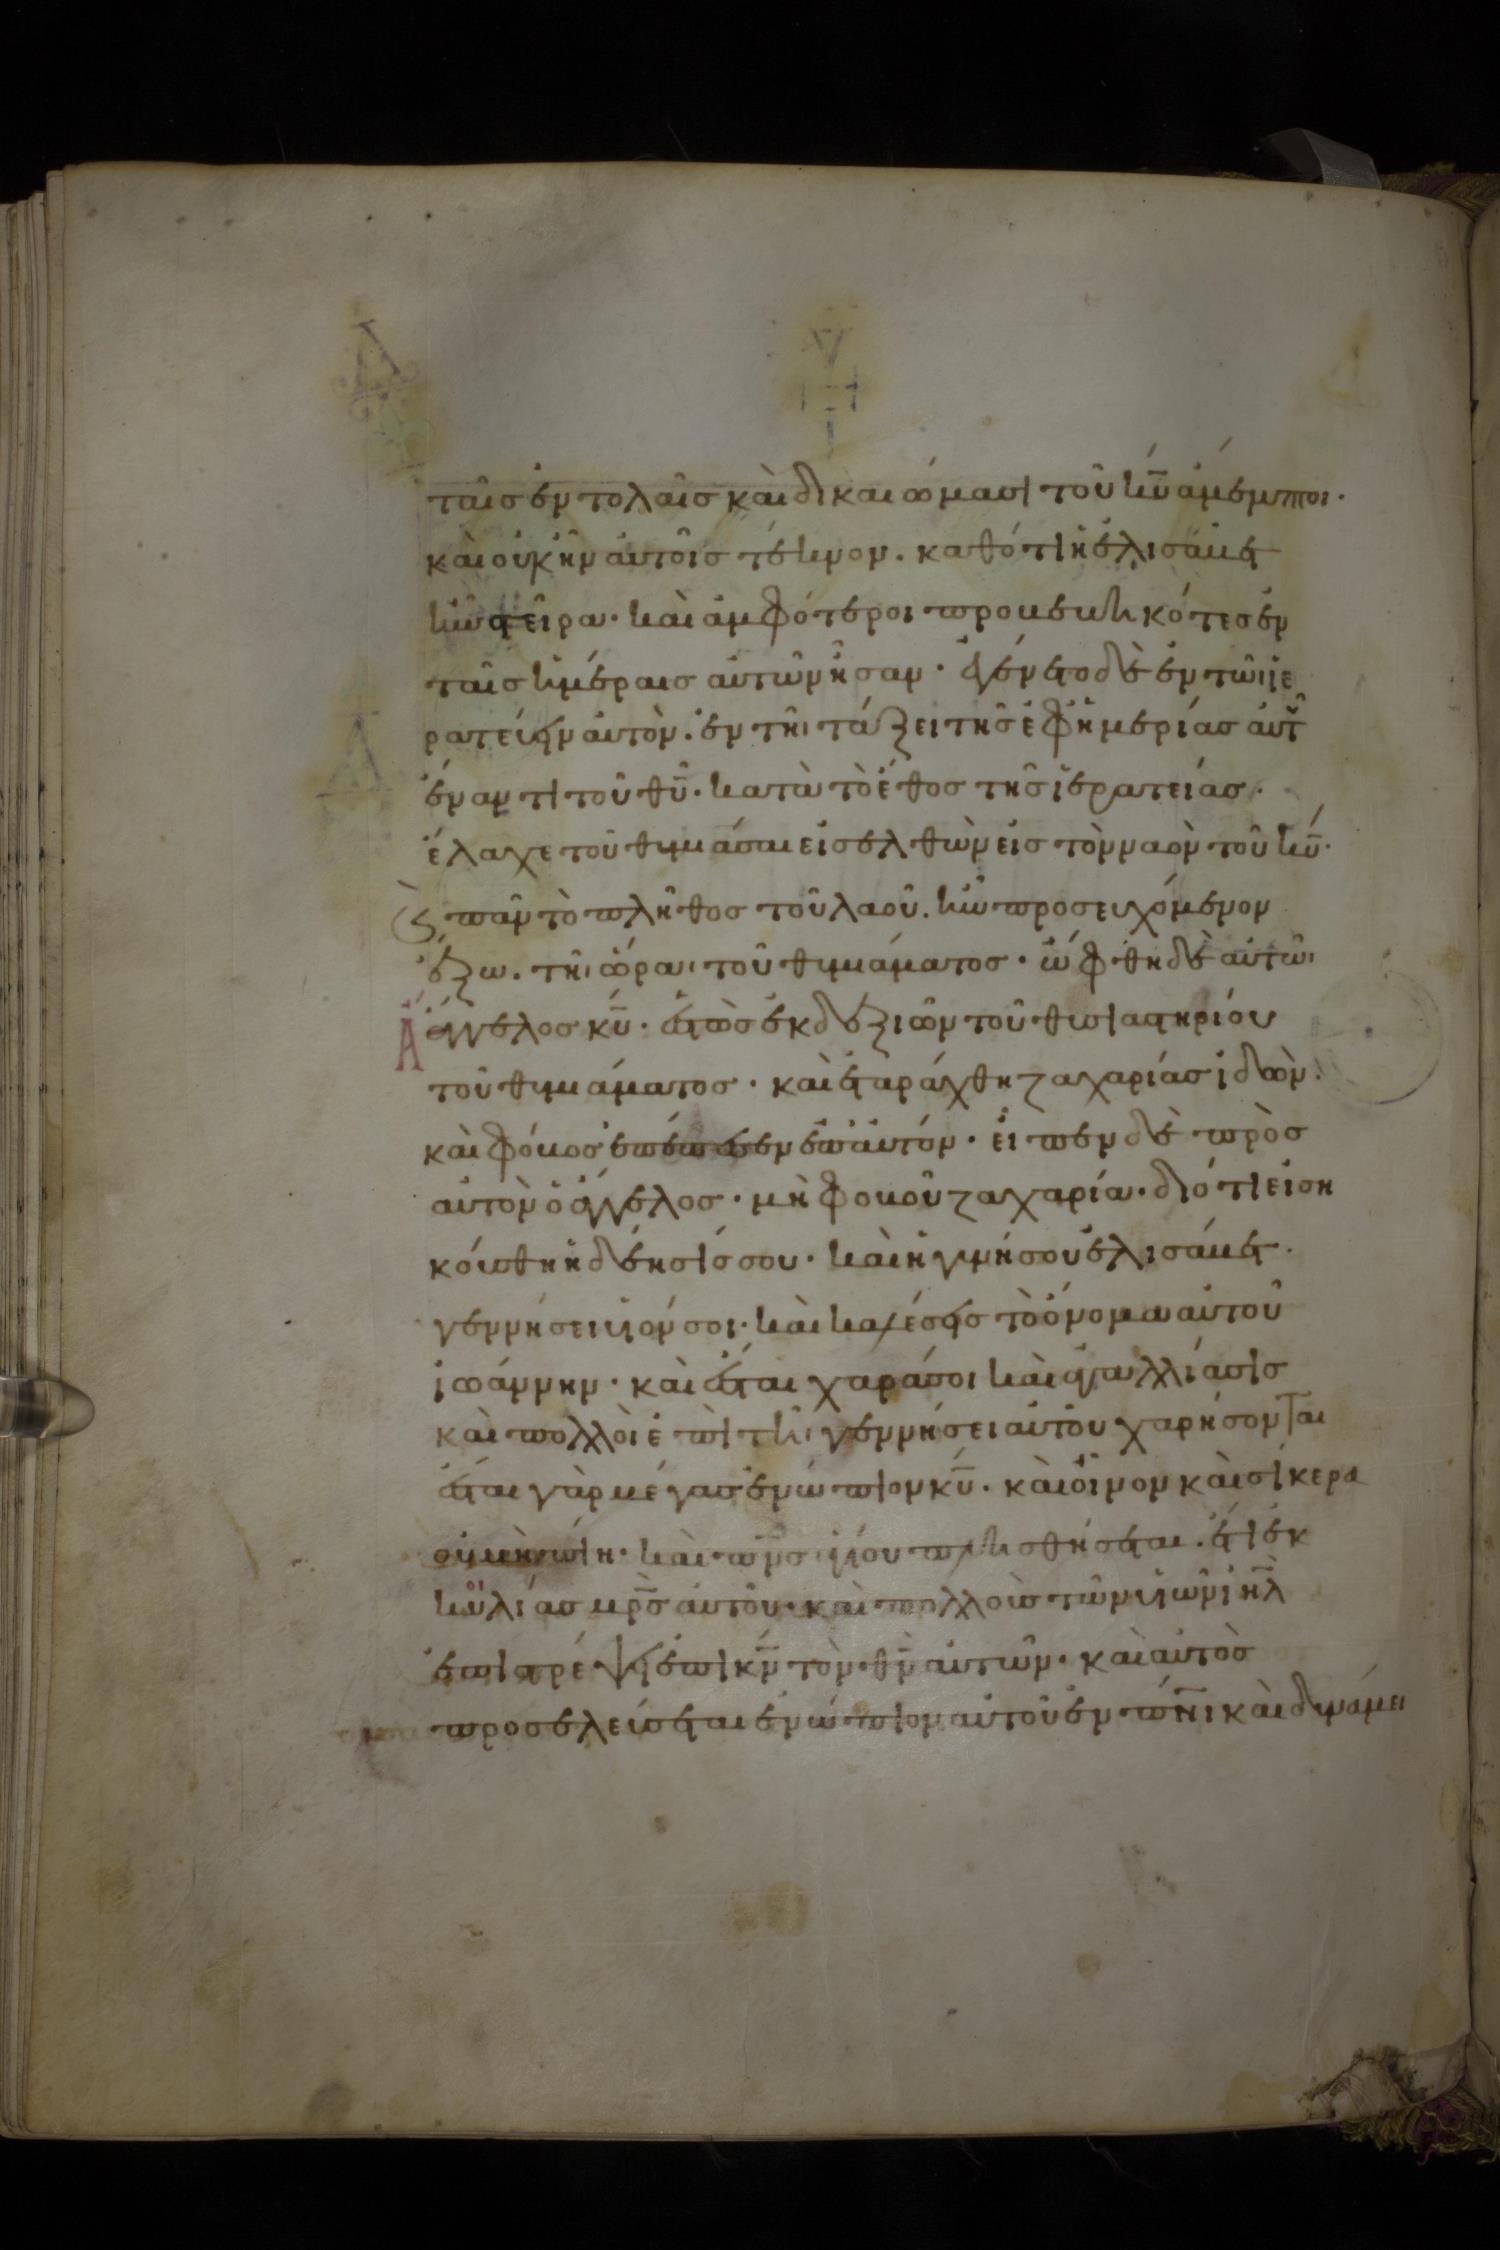 ταῖς ἐντολαῖς καὶ δικαιώμασι τοῦ κ̅υ̅ ἄμεμπτοι·
καὶ οὐκ ἦν αὐτοῖς τέκνον· καθότι ἡ ἐλισάβετ
ἦν στεῖρα· καὶ ἀμφότεροι προβεβηκότες ἐν
ταῖς ἡμέραις αὐτῶν ἦσαν· ἐγένετο δὲ ἐν τῶι ἱε
ρατεύειν αὐτὸν· ἐν τῆι τάξει τῆς ἐφημερίας αὐτ
ἔναντι τοῦ θ̅υ̅· κατὰ τὸ ἔθος τῆς ἱερατείας·
ἔλαχε τοῦ θυμιάσαι εἰσελθὼν εἰς τὸν ναὸν τοῦ κ̅υ̅·
ϛ πᾶν τὸ πλῆθος τοῦ λαοῦ· ἦν προσευχόμενον
ἔξω· τῆι ὥραι τοῦ θυμιάματος· ὤφθη δὲ αὐτῶι
ἄγγελος κ̅υ̅· ἑστὼς ἐκ δεξιῶν τοῦ θυσιαστηρίου
τοῦ θυμιάματος· καὶ ἐταράχθη ζαχαρίας ἰδὼν·
καὶ φόβος ἐπέπεσεν ἐπ' αὐτόν· εἶπεν δὲ πρὸς
αὐτὸν ὁ ἄγγελος· μὴ φοβοῦ ζαχαρία· διότι εἰση
κούσθη ἡ δέησίς σου· καὶ ἡ γυνή σου ἐλισάβετ·
γεννήσει υἱόν σοι· καὶ καλέσεις τὸ ὄνομα αὐτοῦ
ἰωάννην· καὶ ἔσται χαρά σοι καὶ ἀγαλλίασις
καὶ πολλοὶ ἐπὶ τῆι γεννήσει αὐτοῦ χαρήσονται
ἔσται γὰρ μέγας ἐνώπιον κ̅υ̅· καὶ οἶνον καὶ σίκερα
οὐ μὴ πίη· καὶ π̅ν̅ς ἁγίου πλησθήσεται· ἔτι ἐκ
κοιλίας μ̅ρ̅ς̅ αὐτοῦ· καὶ πολλοὺς τῶν υἱῶν ἰ̅η̅λ̅
ἐπιστρέψει ἐπὶ κ̅ν̅ τὸν θ̅ν̅ αὐτῶν· καὶ αὐτὸς
προσελεύσεται ἐνώπιον αὐτοῦ ἐν π̅ν̅ι καὶ δυνάμει